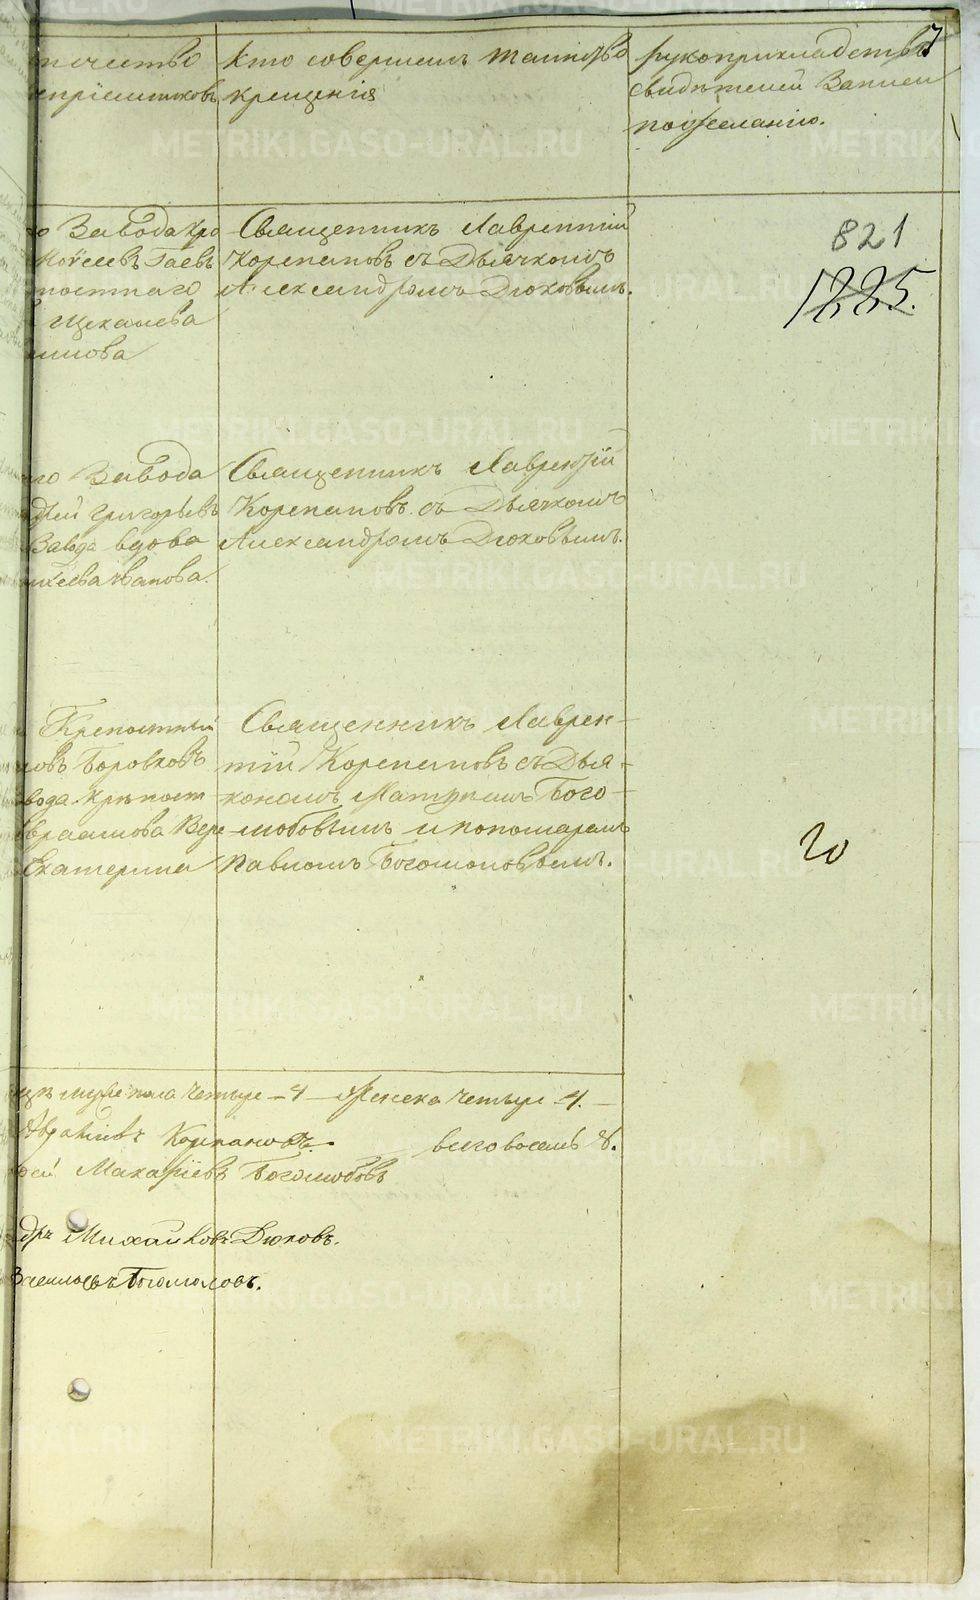 7
отчество
воспріемниковъ
кто совершалъ таинство
крещенія
рукоприкладство
свидѣтелей записи
по желанію.
Завода кре
Моисеевъ Гаевъ
постнаго
Щекалева
Священникъ Лаврентій
Корепановъ съ Дьячкомъ
Александромъ Дюковымъ.
821
1225.
го Завода
Григорьевъ
Завода вдова
Иванова.
Священникъ Лаврентій
Корепановъ съ Дьячкомъ
Александромъ Дюковымъ.
Крепостный
новъ Боровковъ
вода крѣпост
враамова Вере
Екатерина
Священникъ Лаврен-
тій Корепановъ съ Дья-
кономъ Матѳеемъ Бого-
любовымъ и пономаремъ
Павломъ Богомоловымъ.
20
муже пола четыре - 4 - Женска четыре 4. -
Авраміевъ Корепановъ.
всего восемь 8.
Макаріевъ Боголюбовъ
дръ Михайловъ Дюковъ.
Васильевъ Богомоловъ.
METRIKI.GASO-URAL.RU